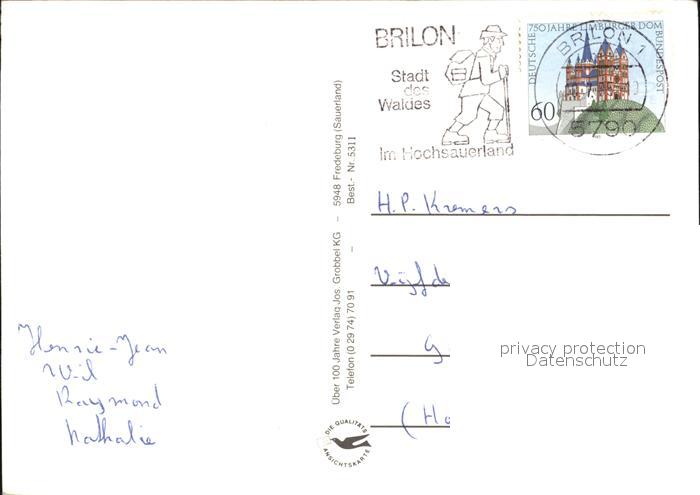 BRILON
Stadt
des
Waldes
Im Hochsauerland
DEUTSCHE
750 JAHRE LIMBURGER DOM
BUNDESPOST
60
BRILON 1
5790
5948 Fredeburg (Sauerland)
Best.- Nr. 5311
Über 100 Jahre Verlag Jos. Grobbel KG
Telefon (0 29 74) 70 91
DIE QUALITÄTS
ANSICHTSKARTE
H.P. Kremers
G
(Ho
privacy protection
Datenschutz
Henrie-Jean
Wil
Raymond
Nathalie